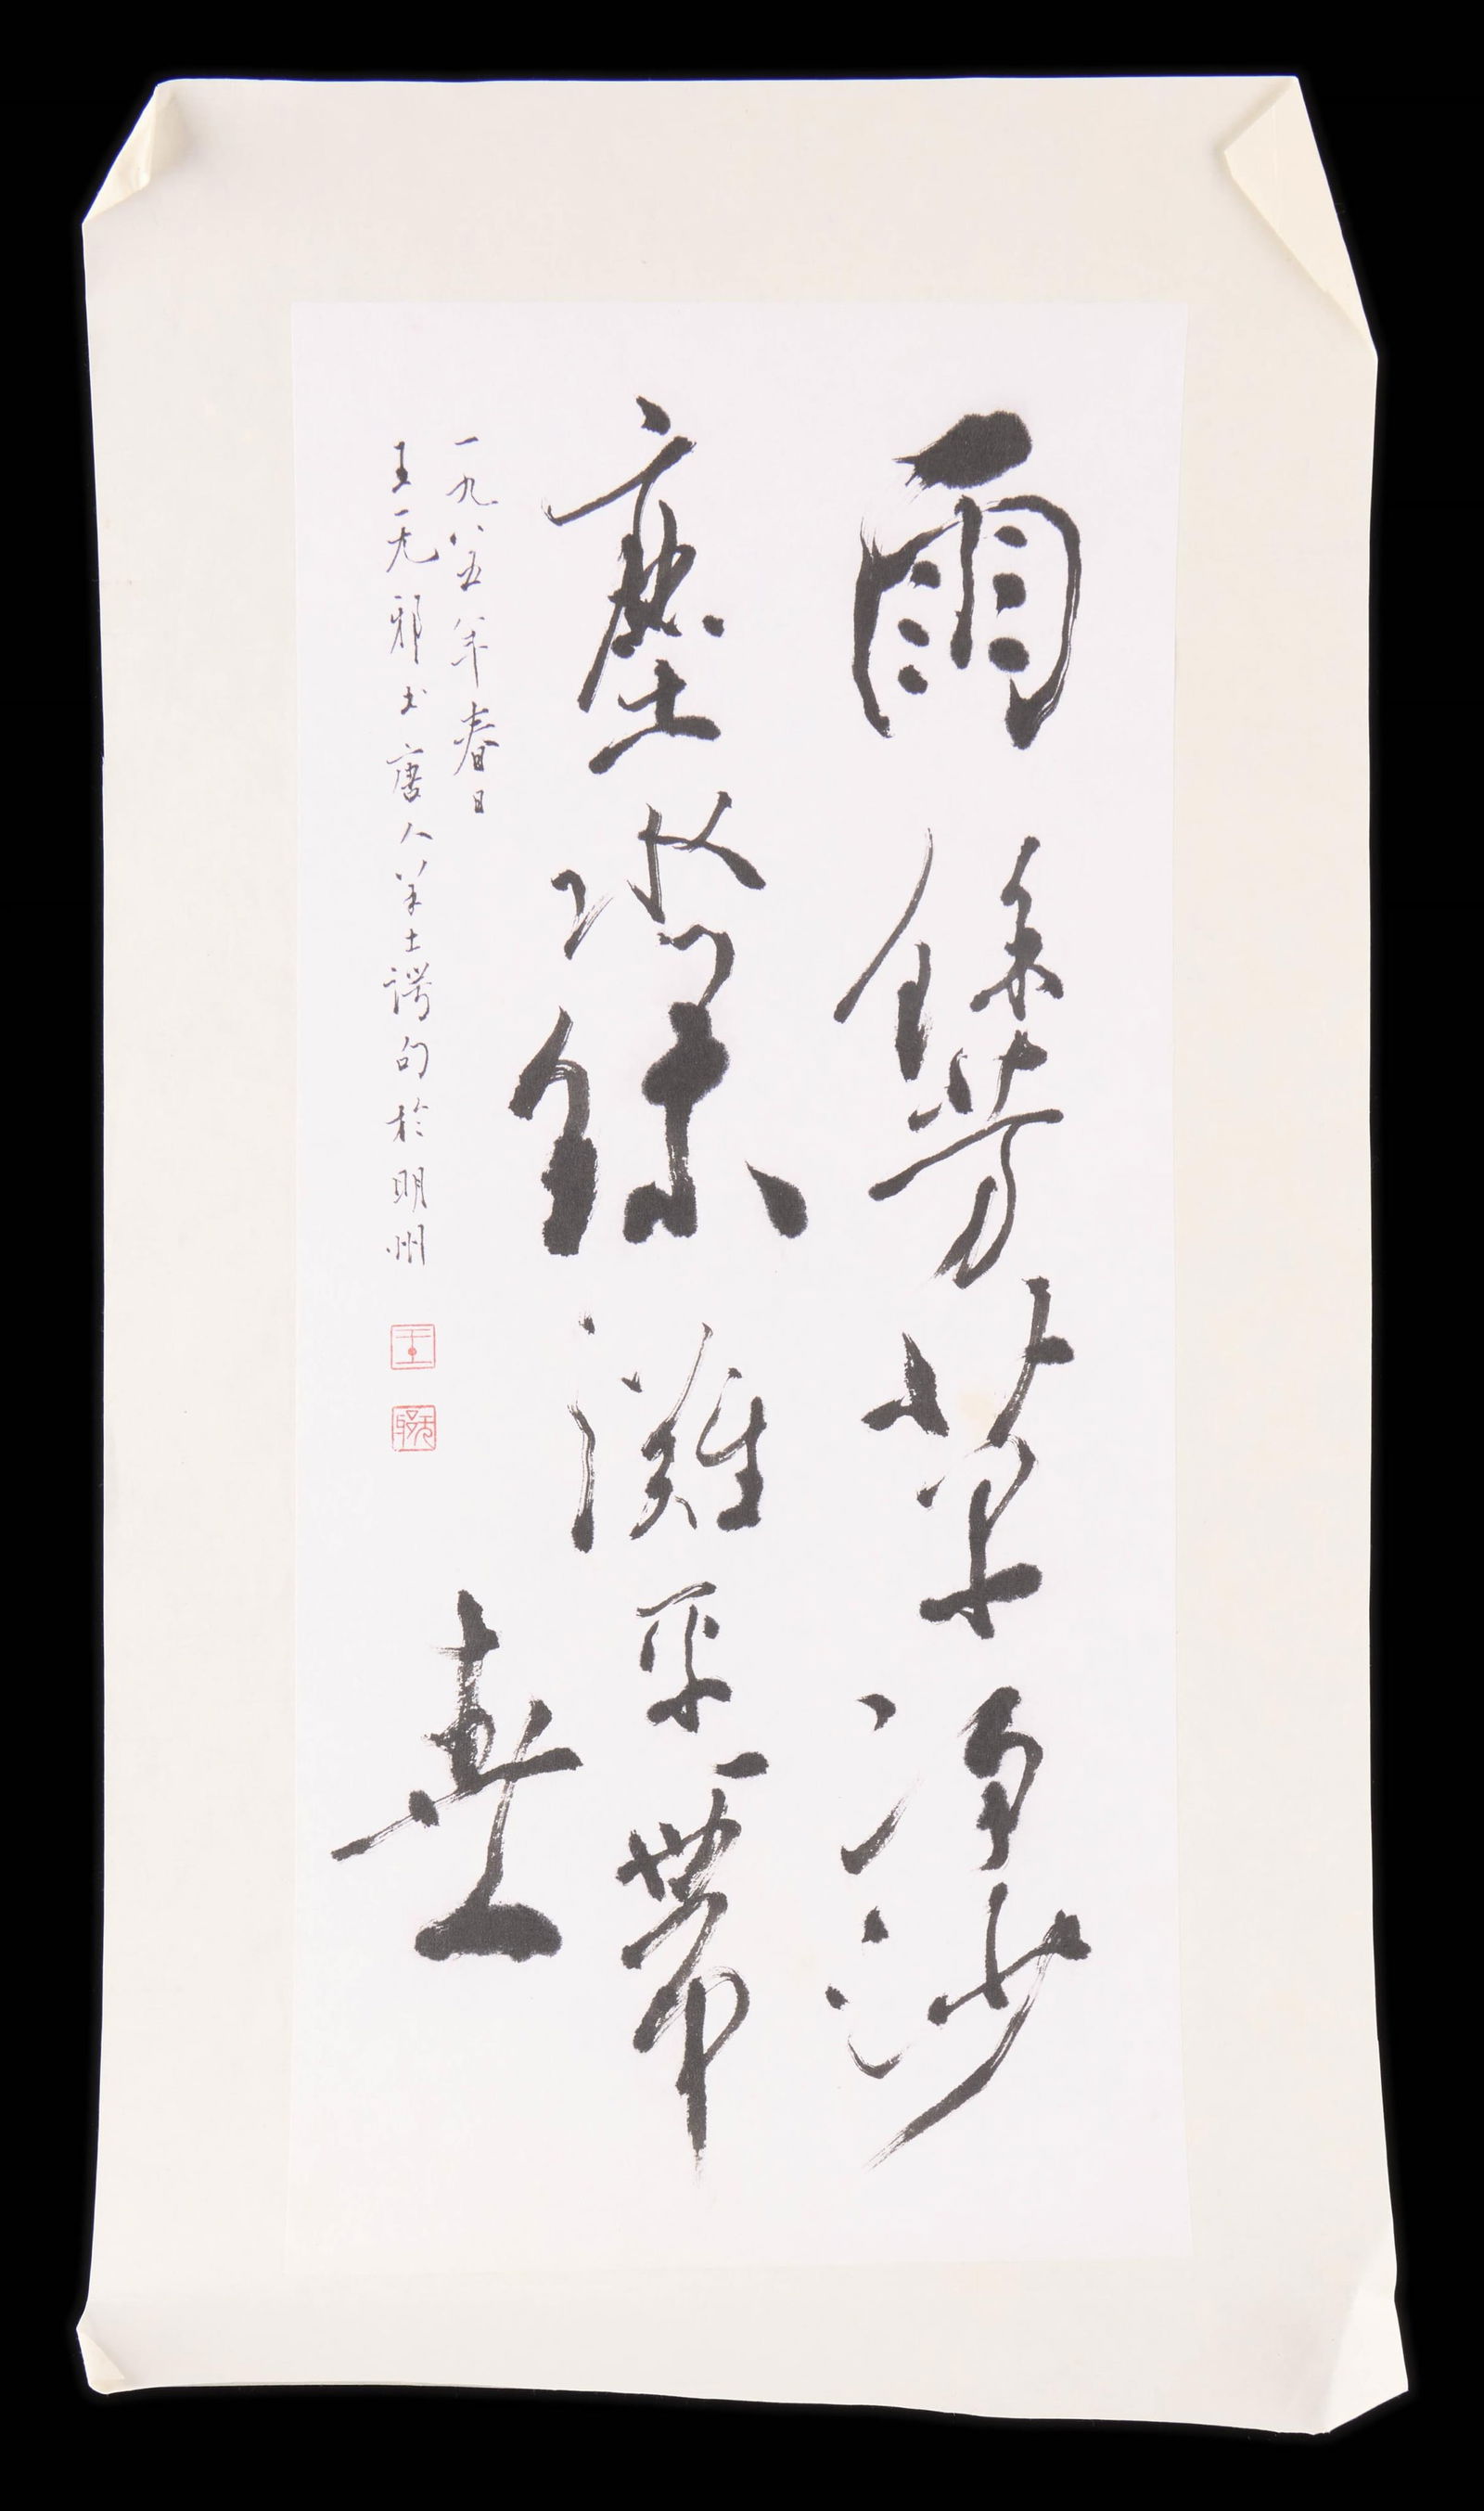 雨餘芳草淨沙
塵水綠灘平一帶
春
一九八五年春日
王无邪书唐人羊士諤句於明州
王